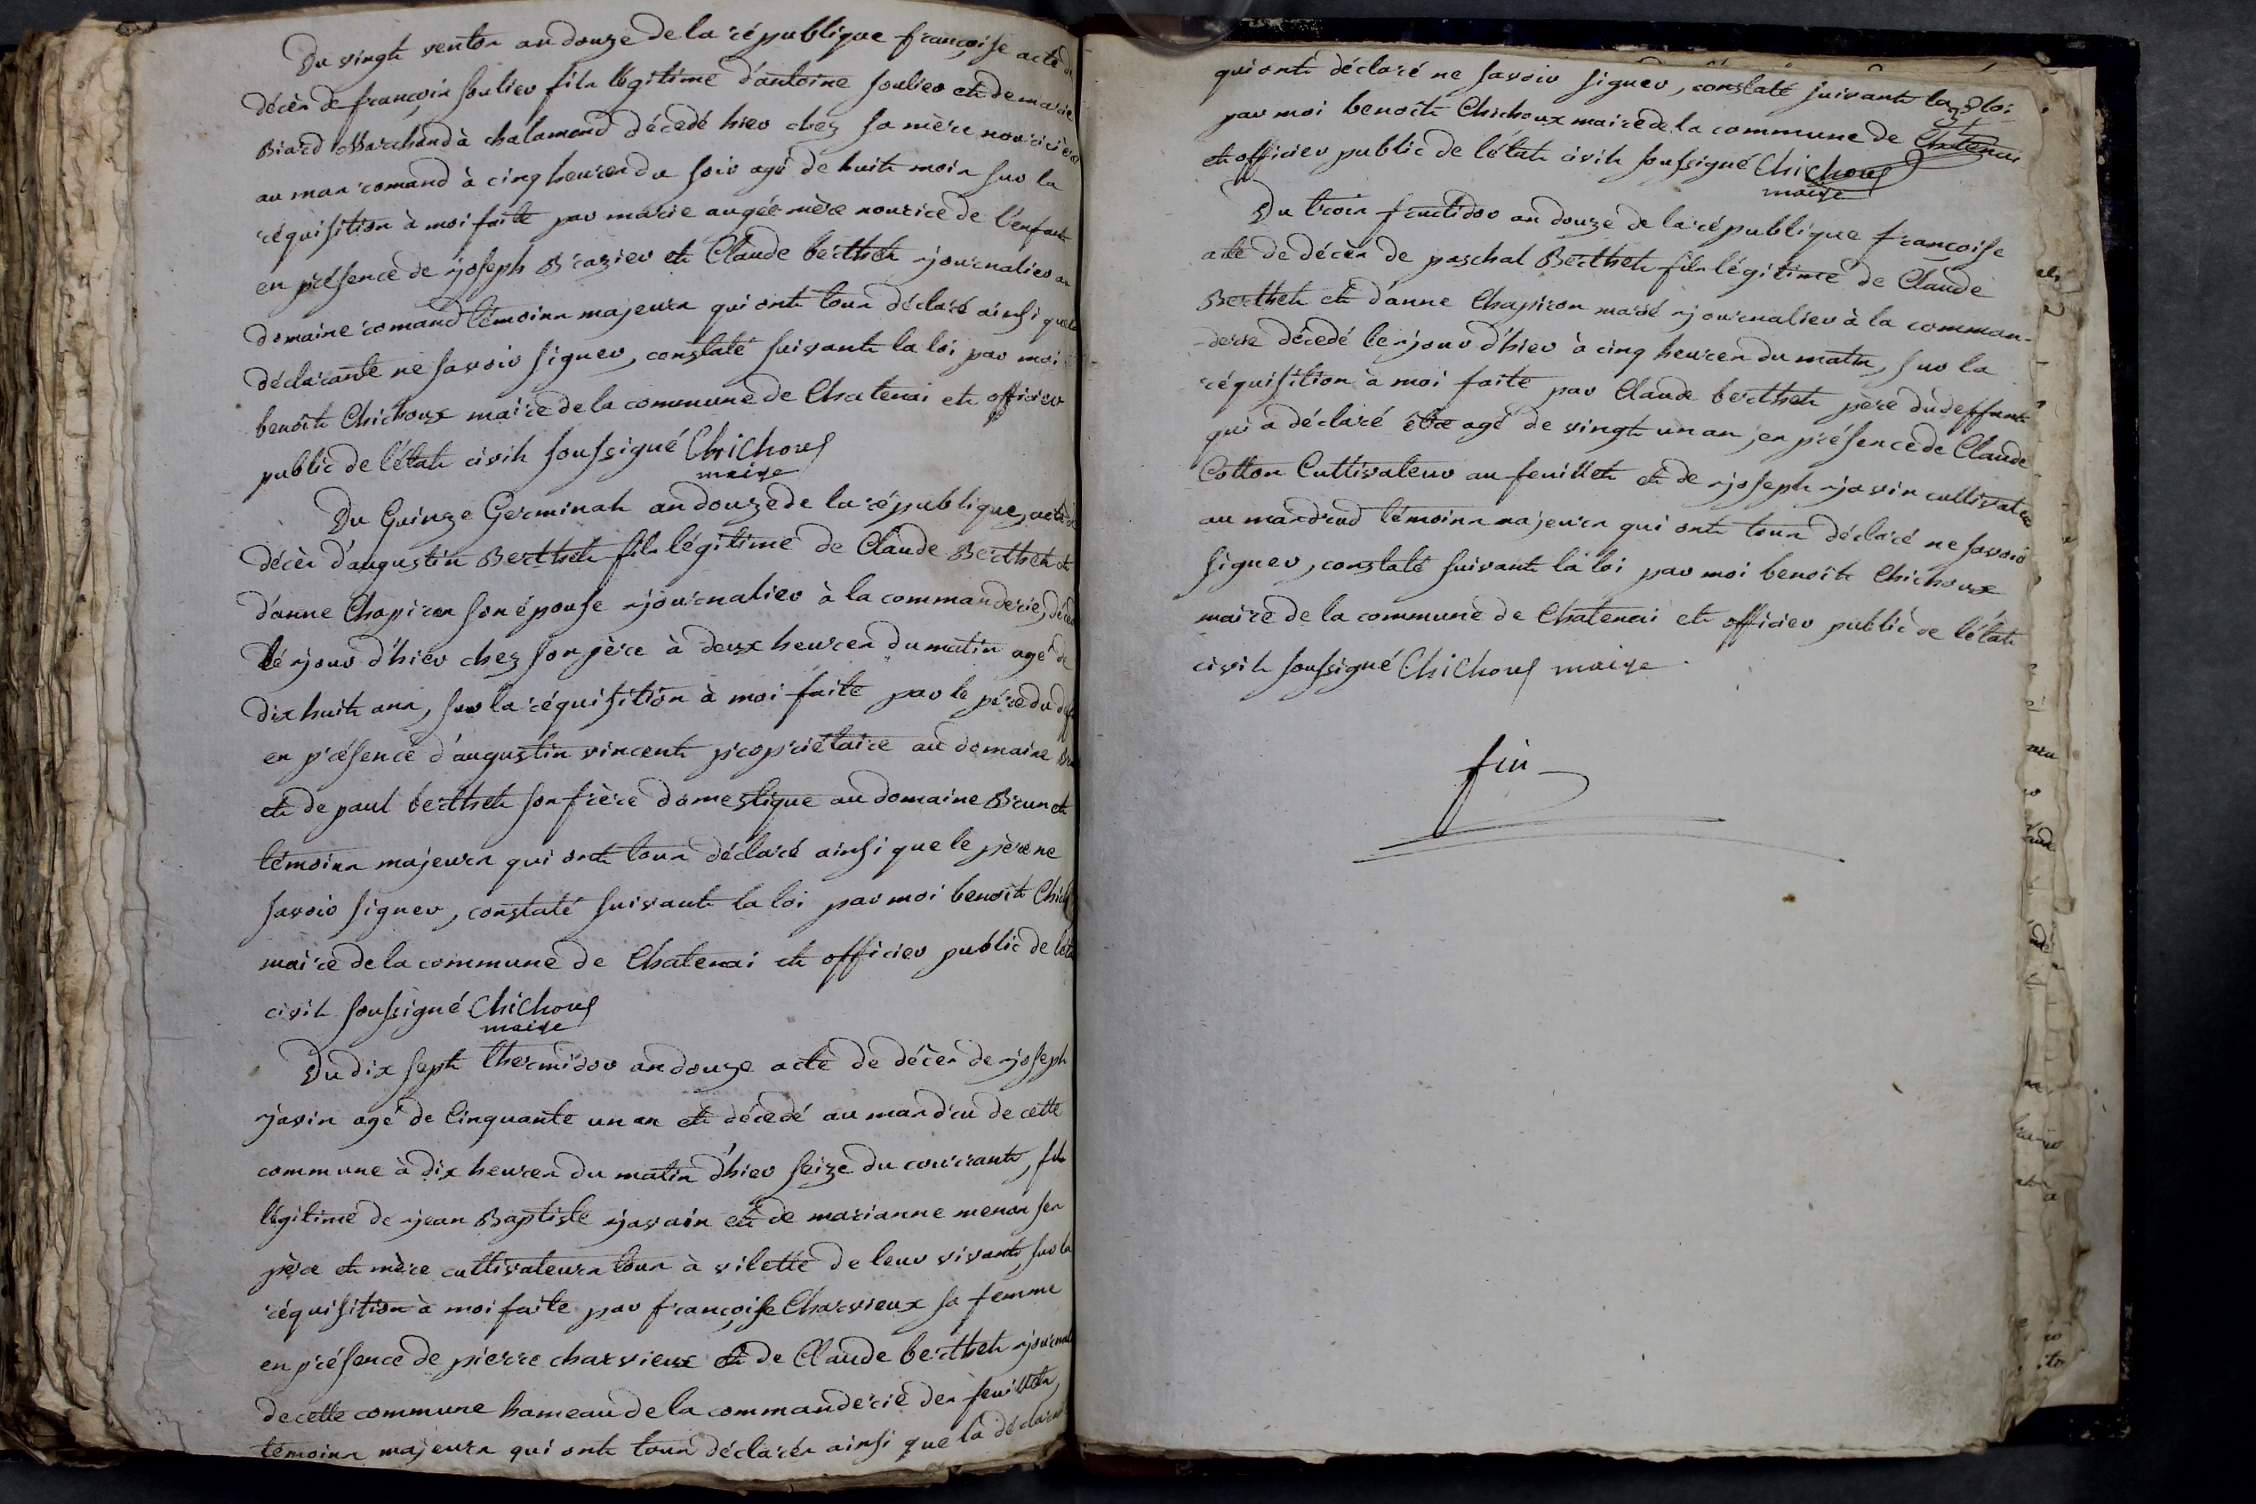 Du vingt ventos an douze de la république françoise acte de
décès de françois soulier fils légitime d'antoine soulier et de marie
Biard Marchand à chalamond décédé hier chez sa mère nouricière
au mas romand à cinq heures du soir agé de huit mois sur la
réquisition à moi faite par marie augée mère nourice de l'enfant
en présence de joseph Brazier et Claude berthet journalier au
domaine romand témoins majeurs qui ont tous déclaré ainsi que la
déclarante ne savoir signer, constaté suivant la loi par moi
benoît Chichoux maire de la commune de Chatenai et officier
public de l'état civil soussigné Chichoux
maire
Du Quinze Germinal an douze de la république, acte de
décès d'augustin Berthet fils légitime de Claude Berthet et
d'anne Chapiron son épouse journalier à la commanderie, décédé
le jour d'hier chez son père à deux heures du matin agé de
dix huit ans, sur la réquisition à moi faite par le père du def
en présence d'augustin vincent propriétaire au domaine Br
et de paul berthet son frère domestique au domaine Brunet
témoins majeurs qui ont tous déclaré ainsi que le père ne
savoir signer, constaté suivant la loi par moi benoît Chich
maire de la commune de Chatenai et officier public de l'éta
civil soussigné Chichoux
maire
Du dix sept thermidor an douze acte de décès de joseph
javin agé de Cinquante un an et décédé au mas dru de cette
commune à dix heures du matin d'hier seize du courrant, fils
légitime de jean Baptiste javain et de marianne menon ses
père et mère cultivateurs tous à vilette de leur vivant, sur la
réquisition à moi faite par françoise Charvieux sa femme
en présence de pierre charvieux et de Claude berthet journal
de cette commune hameau de la commanderie des feuillets,
témoins majeurs qui ont tous déclarés ainsi que la déclarant
qui ont déclaré ne savoir signer, constaté suivant la loi
par moi benoît Chichoux maire de la commune de Chatenai
et officier public de l'état civil soussigné Chichoux
maire
Du trois fructidor an douze de la république françoise
acte de décès de paschal Berthet fils légitime de Claude
Berthet et d'anne Chapiron marié journalier à la comman-
-derie décédé le jour d'hier à cinq heures du matin, sur la
réquisition à moi faite par Claude berthet père du deffunt
qui a déclaré être agé de vingt un an, en présence de Claude
Cotton Cultivateur au feuillet et de joseph javin cultivateur
au mas drud témoins majeurs qui ont tous déclaré ne savoir
signer, constaté suivant la loi par moi benoît Chichoux
maire de la commune de Chatenai et officier public de l'état
civil soussigné Chichoux maire
fin